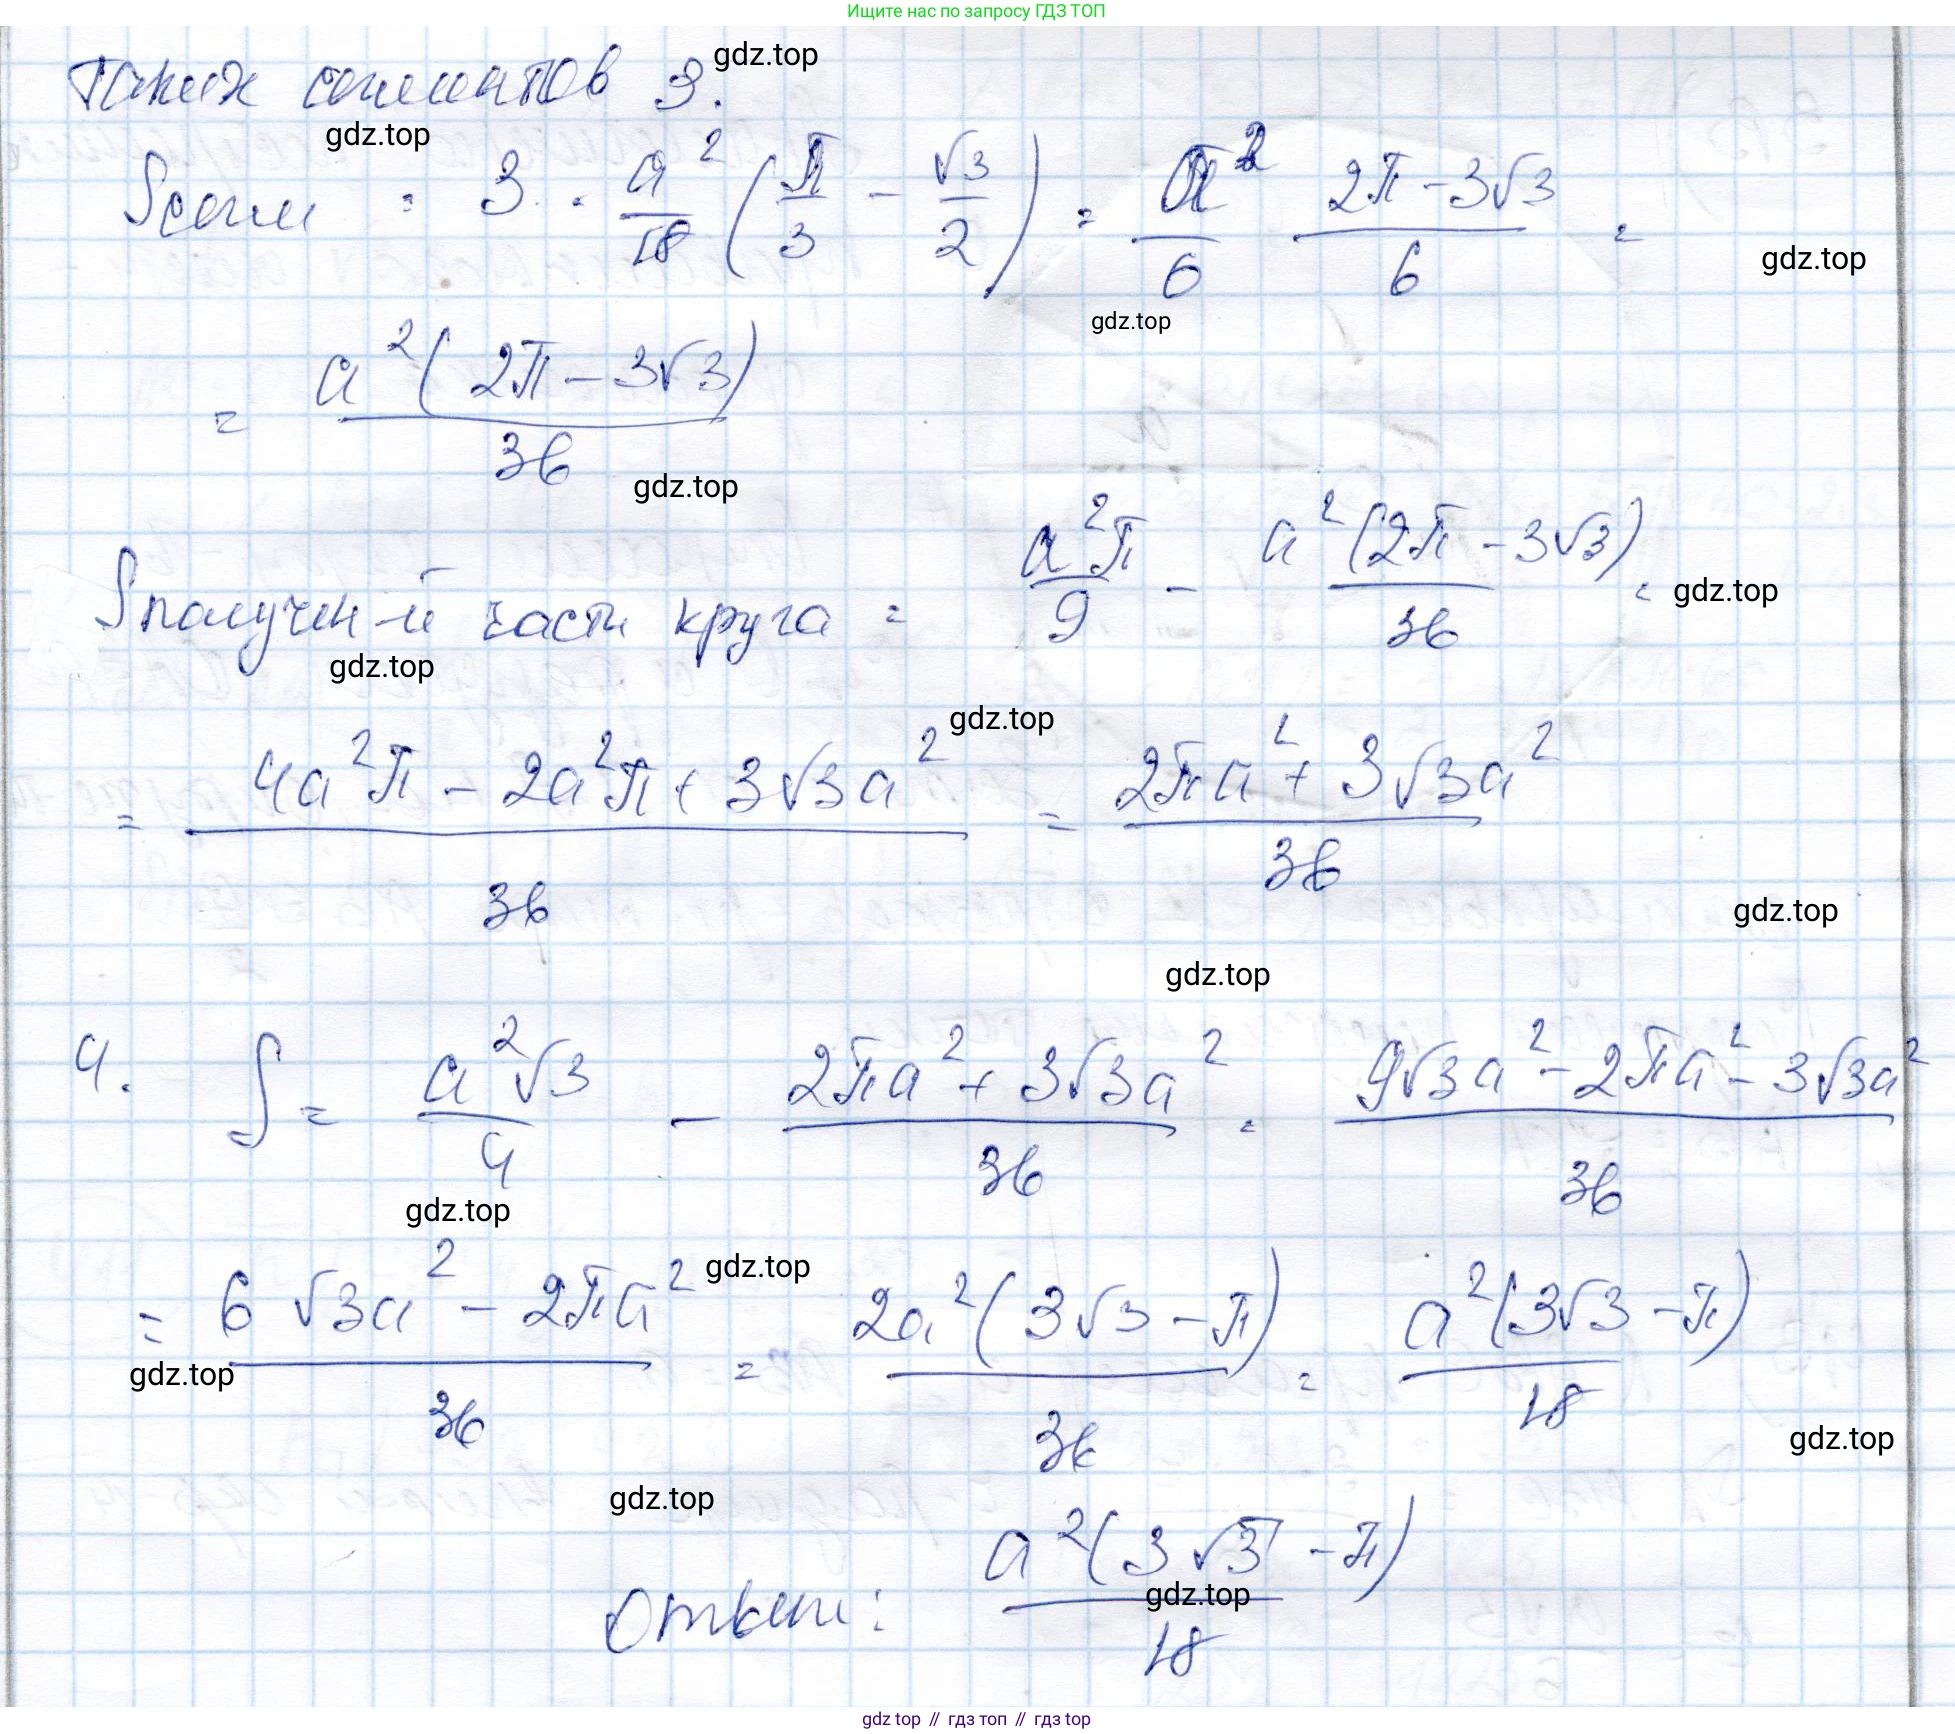 Ищите нас по запросу ГДЗ ТОП
Таких сегментов 3. gdz.top
gdz.top
Sсегм = 3 · a²/18 (π/3 − √3/2) = a²/6 2π−3√3/6 =
gdz.top
gdz.top
= a²(2π−3√3)/36
gdz.top
Sполучен-й части круга = a²π/9 − a²(2π−3√3)/36 =
gdz.top
gdz.top
gdz.top
= 4a²π − 2a²π + 3√3a²/36 = 2πa² + 3√3a²/36
gdz.top
gdz.top
4. S = a²√3/4 − 2πa² + 3√3a²/36 = 9√3a² − 2πa² − 3√3a²/36
gdz.top
gdz.top
= 6√3a² − 2πa²/36 = 2a²(3√3−π)/36 = a²(3√3−π)/18
gdz.top
gdz.top
gdz.top
Ответ: a²(3√3−π)/18
gdz.top
gdz top // гдз топ // гдз top